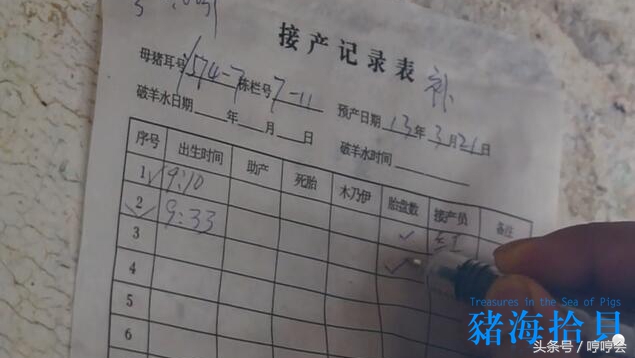 接产记录表 补
母猪耳号 1574-7 栋栏号 7-11 预产日期 13年3月21日
破羊水日期___年___月___日 破羊水时间
序号 出生时间 助产 死胎 木乃伊 胎盘数 接产员 备注
1 ✓ 9:10
2 ✓ 9:33 ✓
3 ✓
4
5
6
Treasures in the Sea of Pigs
豬海拾貝
头条号 / 哼哼会